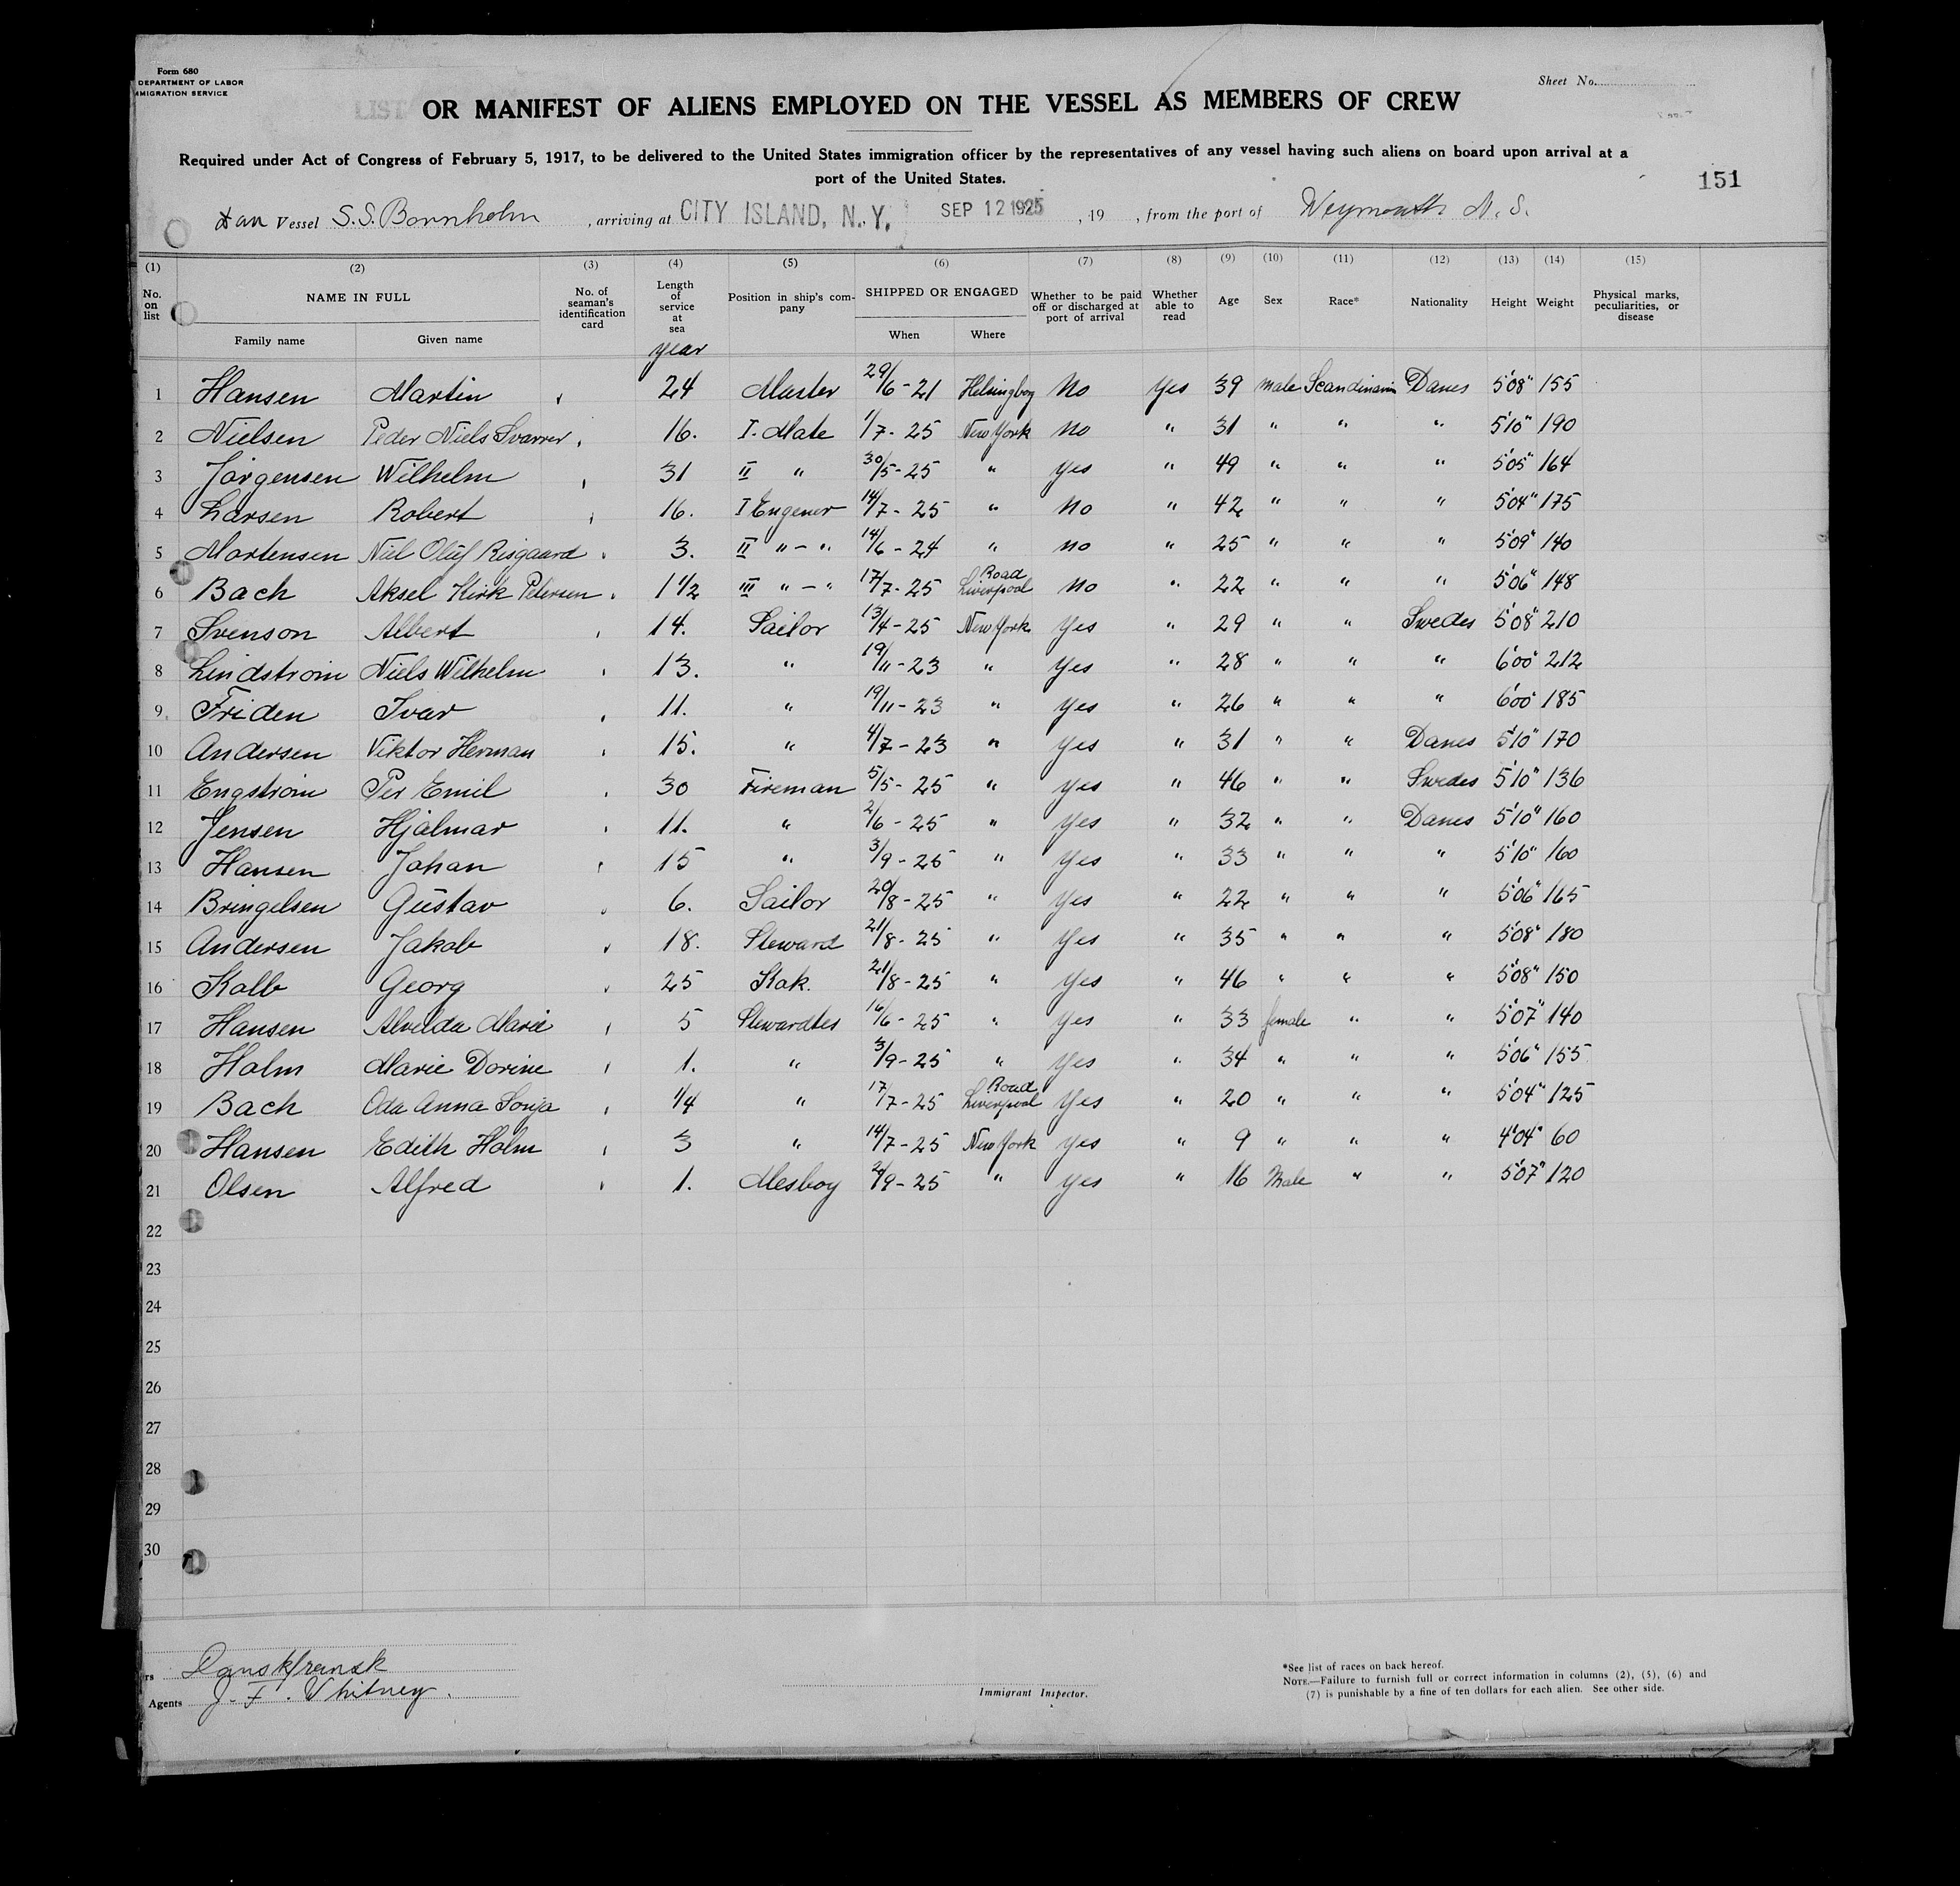 Form 680
DEPARTMENT OF LABOR
MIGRATION SERVICE
Sheet No.
LIST OR MANIFEST OF ALIENS EMPLOYED ON THE VESSEL AS MEMBERS OF CREW
Required under Act of Congress of February 5, 1917, to be delivered to the United States immigration officer by the representatives of any vessel having such aliens on board upon arrival at a
port of the United States.
151
Dan Vessel S.S. Bornholm , arriving at CITY ISLAND, N.Y. SEP 12 1925 , 19 , from the port of Weymouth N.S.
(1) (2) (3) (4) (5) (6) (7) (8) (9) (10) (11) (12) (13) (14) (15)
No. on list NAME IN FULL No. of seaman's identification card Length of service at sea Position in ship's company SHIPPED OR ENGAGED Whether to be paid off or discharged at port of arrival Whether able to read Age Sex Race* Nationality Height Weight Physical marks, peculiarities, or disease
Family name Given name year When Where
1 Hansen Martin 24 Master 29/6-21 Helsingborg No Yes 39 male Scandinavin Danes 5'08" 155
2 Nielsen Peder Niels Svarrer 16. I. Mate 1/7-25 New York No " 31 " " " 5'10" 190
3 Jørgensen Wilhelm 31 II " 30/5-25 " Yes " 49 " " " 5'05" 164
4 Larsen Robert 16. I Engener 14/7-25 " No " 42 " " " 5'04" 175
5 Mortensen Niel Oluf Risgaard 3. II "-" 14/6-24 " no " 25 " " " 5'09" 140
6 Bach Aksel Kirk Petersen 1 1/2 III "-" 17/7-25 Road Liverpool No " 22 " " " 5'06" 148
7 Svenson Albert 14. Sailor 13/4-25 New York Yes " 29 " " Swedes 5'08" 210
8 Lindstrom Niels Wilhelm 13. " 19/11-23 " Yes " 28 " " " 6'00" 212
9 Friden Ivar 11. " 19/11-23 " Yes " 26 " " " 6'00" 185
10 Andersen Viktor Herman 15. " 4/7-23 " Yes " 31 " " Danes 5'10" 170
11 Engstrom Per Emil 30 Fireman 5/5-25 " Yes " 46 " " Swedes 5'10" 136
12 Jensen Hjalmar 11. " 2/6-25 " Yes " 32 " " Danes 5'10" 160
13 Hansen Johan 15 " 3/9-25 " Yes " 33 " " " 5'10" 160
14 Bringelsen Gustav 6. Sailor 20/8-25 " Yes " 22 " " " 5'06" 165
15 Andersen Jakob 18. Steward 21/8-25 " Yes " 35 " " " 5'08" 180
16 Kolb Georg 25 Kok. 21/8-25 " Yes " 46 " " " 5'08" 150
17 Hansen Alvilda Marie 5 Stewardtes 16/6-25 " Yes " 33 female " " 5'07" 140
18 Holm Marie Dorine 1. " 3/9-25 " Yes " 34 " " " 5'06" 155
19 Bach Oda Anna Sonja 1/4 " 17/7-25 Road Liverpool Yes " 20 " " " 5'04" 125
20 Hansen Edith Holm 3 " 14/7-25 New York Yes " 9 " " " 4'04" 60
21 Olsen Alfred 1. Mesboy /9-25 " Yes " 16 Male " " 5'07" 120
22
23
24
25
26
27
28
29
30
rs Danskfransk
Agents J. F. Whitney.
Immigrant Inspector.
*See list of races on back hereof.
NOTE.—Failure to furnish full or correct information in columns (2), (5), (6) and
(7) is punishable by a fine of ten dollars for each alien. See other side.